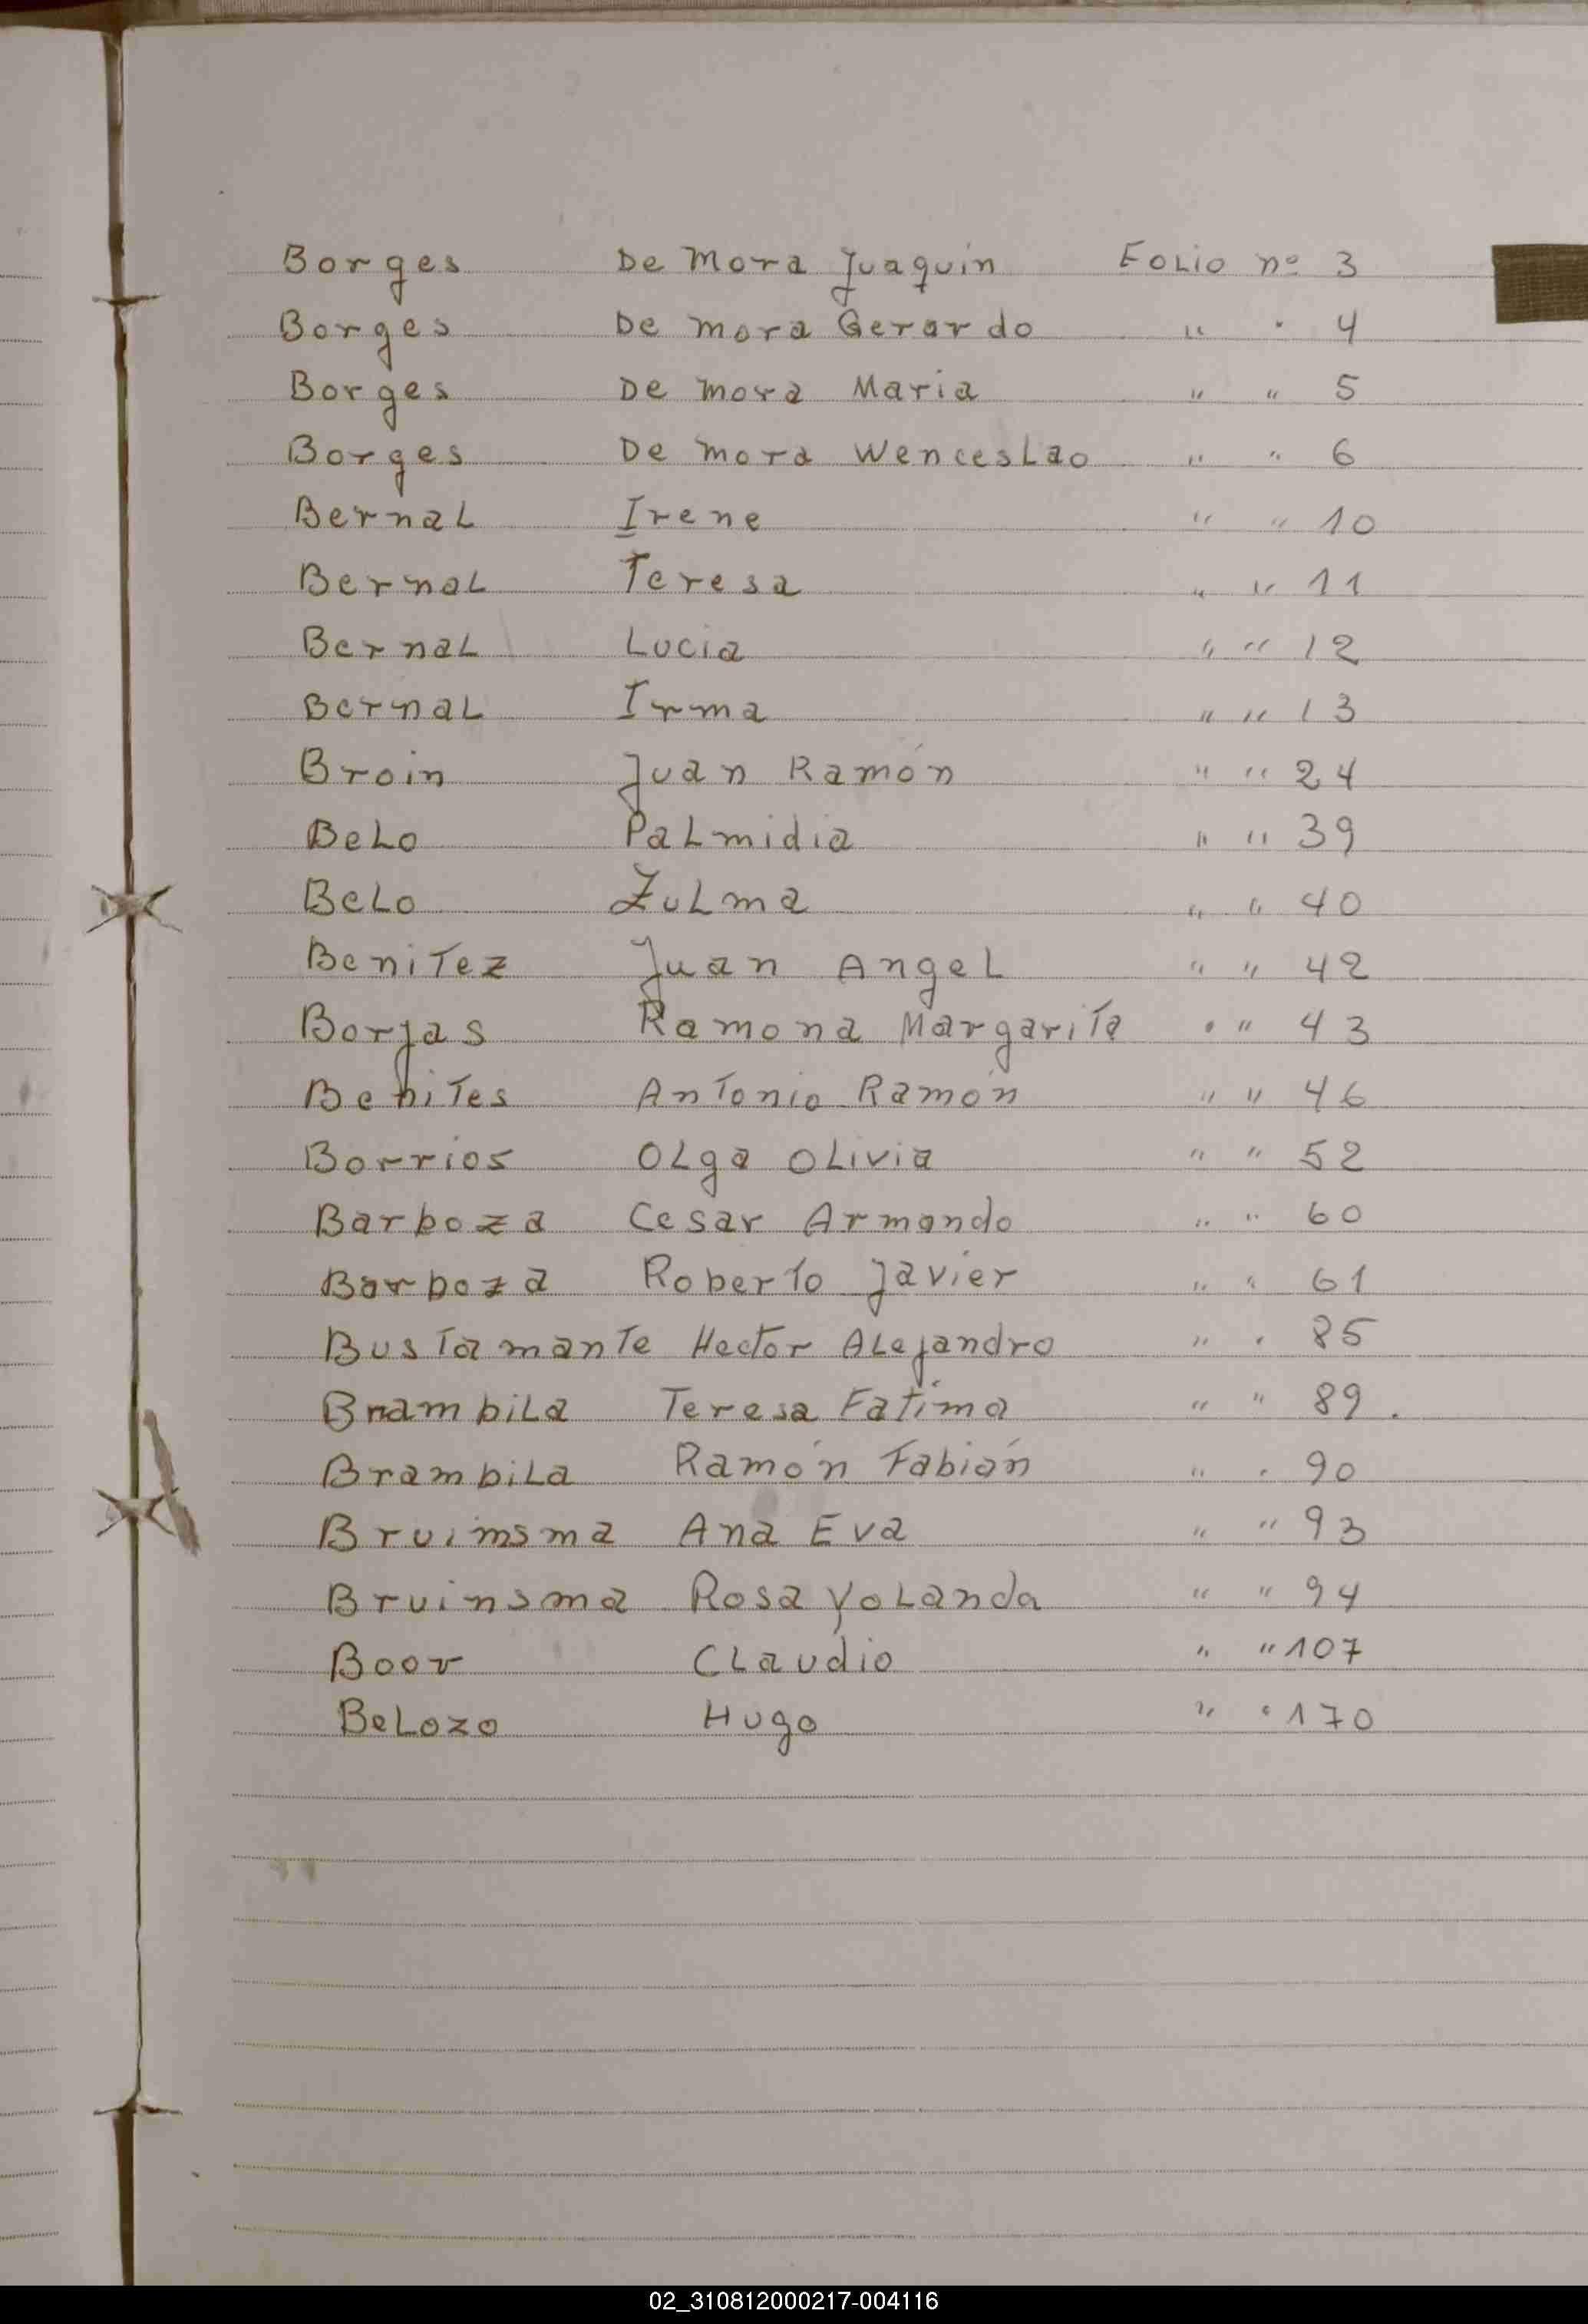 Borges De Mora Juaquin Folio nº 3
Borges De Mora Gerardo " " 4
Borges De Mora Maria " " 5
Borges De Mora Wenceslao " " 6
Bernal Irene " " 10
Bernal Teresa " " 11
Bernal Lucia " " 12
Bernal Irma " " 13
Broin Juan Ramón " " 24
Belo Palmidia " " 39
Belo Zulma " " 40
Benitez Juan Angel " " 42
Borjas Ramona Margarita " " 43
Benites Antonio Ramón " " 46
Borrios Olga Olivia " " 52
Barboza Cesar Armando " " 60
Barboza Roberto Javier " " 61
Bustamante Hector Alejandro " " 85
Brambila Teresa Fatima " " 89.
Brambila Ramón Fabián " " 90
Bruimsma Ana Eva " " 93
Bruinsma Rosa Yolanda " " 94
Boov Claudio " " 107
Belozo Hugo " " 170
02_310812000217-004116